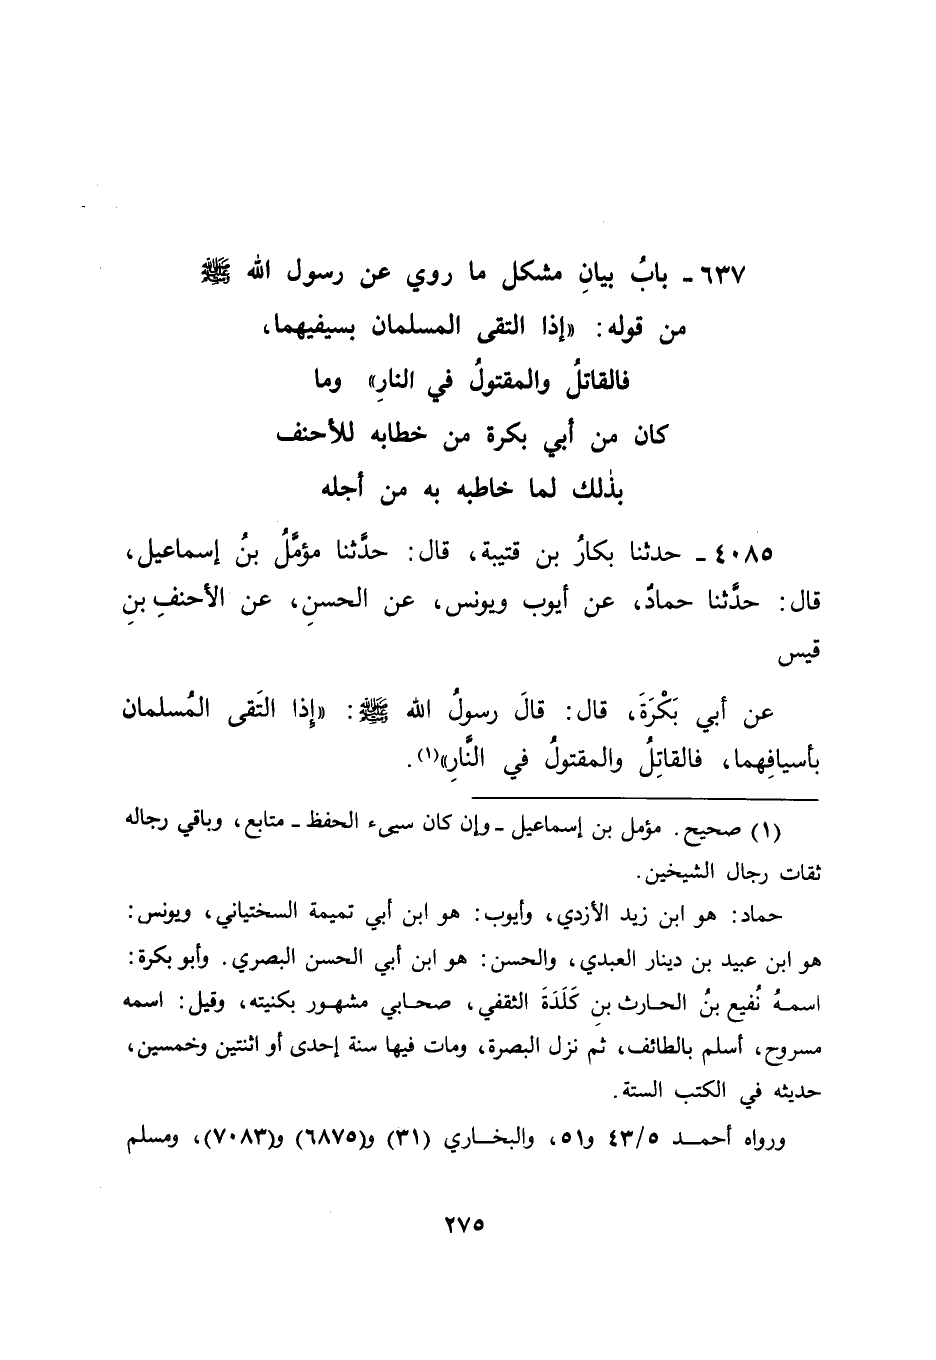 ٦٣٧ ـ بابُ بيانِ مشكل ما روي عن رسول الله ﷺ
من قوله: «إذا التقى المسلمان بسيفيهما،
فالقاتلُ والمقتولُ في النارِ» وما
كان من أبي بكرة من خطابه للأحنف
بذٰلك لما خاطبه به من أجله
٤٠٨٥ ـ حدثنا بكارُ بن قتيبة، قال: حدَّثنا مؤمَّلُ بنُ إسماعيل،
قال: حدَّثنا حمادٌ، عن أيوب ويونس، عن الحسنِ، عن الأحنفِ بنِ
قيس
عن أبي بَكْرَةَ، قال: قالَ رسولُ الله ﷺ: «إِذا التَقى المُسلمان
بأسيافِهما، فالقاتِلُ والمقتولُ في النَّارِ»(١).
(١) صحيح. مؤمل بن إسماعيل ـ وإن كان سيىء الحفظ ـ متابع، وباقي رجاله
ثقات رجال الشيخين.
حماد: هو ابن زيد الأزدي، وأيوب: هو ابن أبي تميمة السختياني، ويونس:
هو ابن عبيد بن دينار العبدي، والحسن: هو ابن أبي الحسن البصري. وأبو بكرة:
اسمهُ نُفيع بنُ الحارث بنِ كَلَدَةَ الثقفي، صحابي مشهور بكنيته، وقيل: اسمه
مسروح، أسلم بالطائف، ثم نزل البصرة، ومات فيها سنة إحدى أو اثنتين وخمسين،
حديثه في الكتب الستة.
ورواه أحمد ٤٣/٥ و٥١، والبخاري (٣١) و(٦٨٧٥) و(٧٠٨٣)، ومسلم
٢٧٥